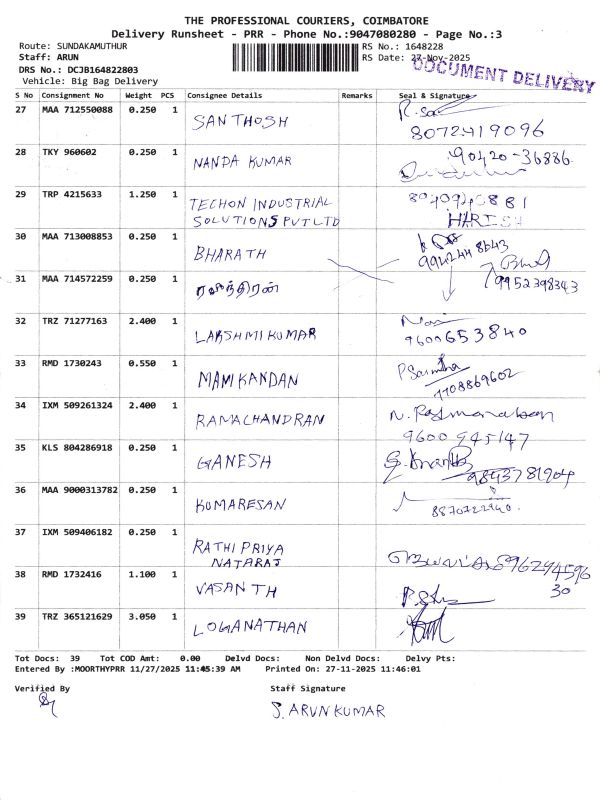 THE PROFESSIONAL COURIERS, COIMBATORE
Delivery Runsheet - PRR - Phone No.:9047080280 - Page No.:3
Route: SUNDAKAMUTHUR RS No.: 1648228
Staff: ARUN RS Date: 27-Nov-2025
DOCUMENT DELIVERY
DRS No.: DCJB164822803
Vehicle: Big Bag Delivery
S No Consignment No Weight PCS Consignee Details Remarks Seal & Signature
27 MAA 712550088 0.250 1 SANTHOSH
8072419096
28 TKY 960602 0.250 1 NANDA KUMAR 90420-36886
29 TRP 4215633 1.250 1 TECHON INDUSTRIAL
SOLUTIONS PVT LTD HARISH
30 MAA 713008853 0.250 1 BHARATH
31 MAA 714572259 0.250 1 9952398343
32 TRZ 71277163 2.400 1 LAKSHMI KUMAR 9600653840
33 RMD 1730243 0.550 1 MANIKANDAN
7708869602
34 IXM 509261324 2.400 1 RAMACHANDRAN
9600945147
35 KLS 804286918 0.250 1 GANESH 9843781904
36 MAA 9000313782 0.250 1 KUMARESAN
37 IXM 509406182 0.250 1 RATHI PRIYA
NATARAJ
38 RMD 1732416 1.100 1 VASANTH
39 TRZ 365121629 3.050 1 LOGANATHAN
Tot Docs: 39 Tot COD Amt: 0.00 Delvd Docs: Non Delvd Docs: Delvy Pts:
Entered By :MOORTHYPRR 11/27/2025 11:45:39 AM Printed On: 27-11-2025 11:46:01
Verified By Staff Signature
S. ARUN KUMAR